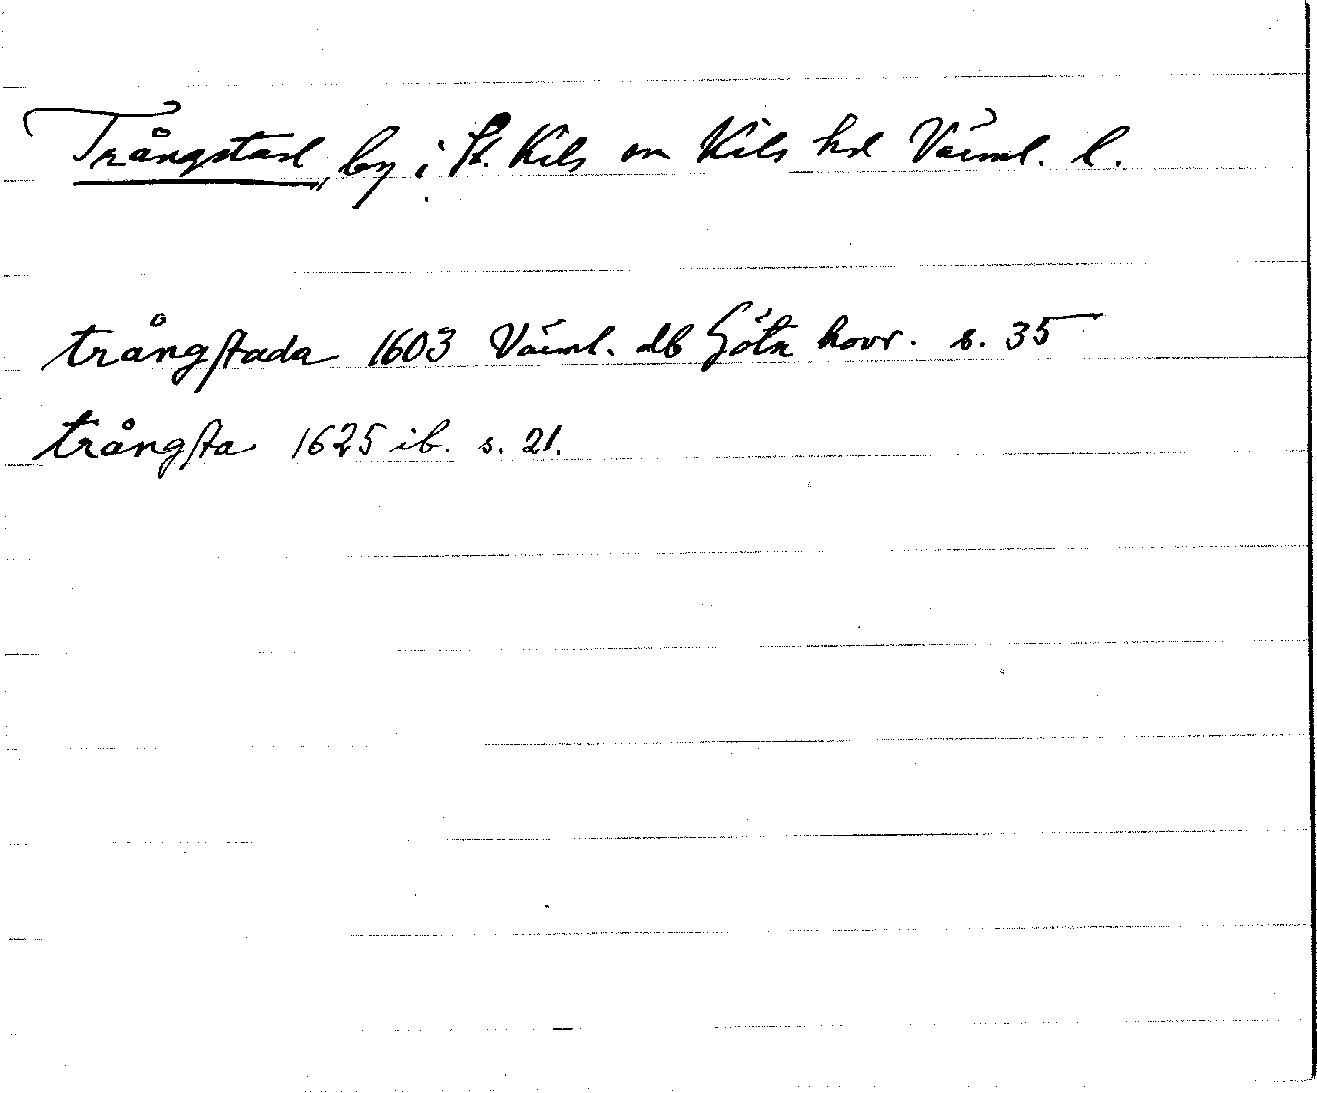 Trångstad, by i St. Kils sn Kils hd Värml. l.
trångstada 1603 Värml. db Göta hovr. s. 35
trångsta 1625 ib. s. 21.